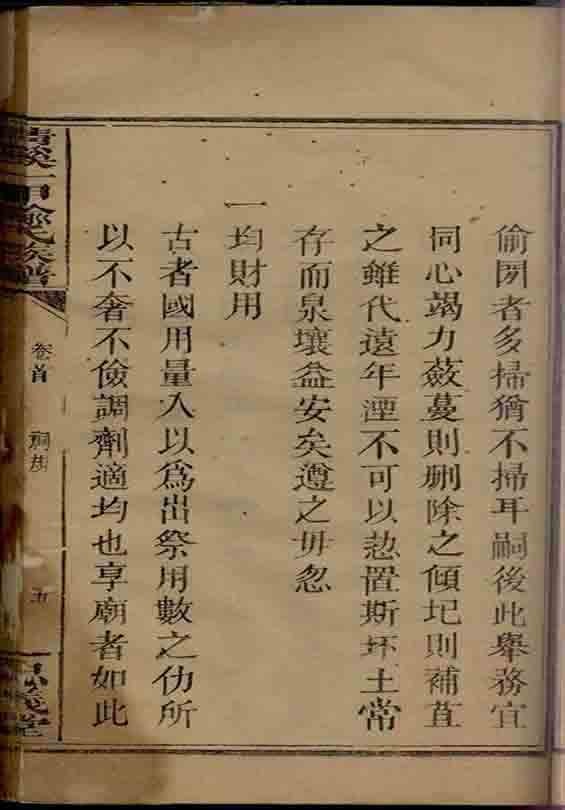 偷閑者多掃猶不掃耳嗣後此舉務宜
同心竭力蔹蔓則刪除之傾圮則補葺
之雖代遠年湮不可以恝置斯坏土常
存而泉壤益安矣遵之毋忽
一均財用
古者國用量入以為出祭用數之仂所
以不奢不儉調劑適均也享廟者如此
清溪一甲徐氏族譜
卷首
祠規